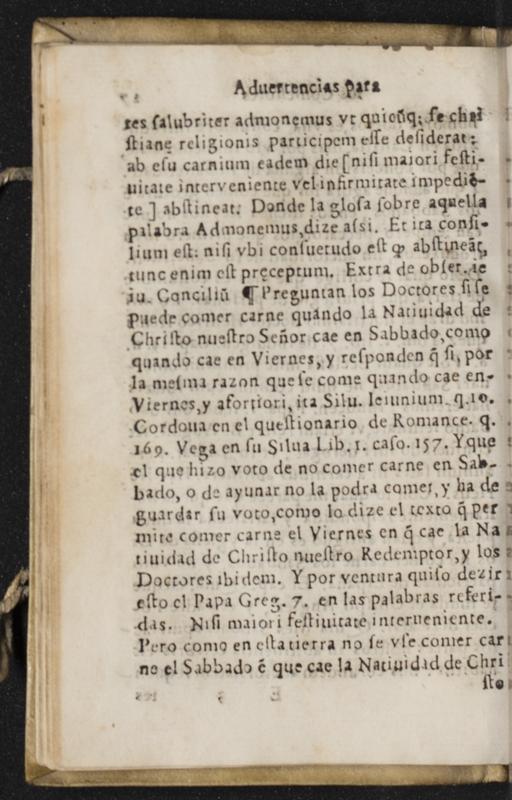 Aduertencias para
res ſalubriter admonemus vt quicũq; ſe chri
ſtianę religionis participem eſſe deſiderat:
ab eſu carnium eadem die [niſi maiori feſti-
uitate interveniente vel infirmitate impediẽ-
te] abſtineat. Donde la gloſa ſobre aquella
palabra Admonemus, dize aſsi. Et ita conſi-
lium eſt: niſi vbi conſuetudo eſt ꝙ abſtineãt,
tunc enim eſt pręceptum. Extra de obſer. ie
iu. Conciliũ ¶ Preguntan los Doctores ſi ſe
puede comer carne quando la Natiuidad de
Chriſto nueſtro Señor cae en Sabbado, como
quando cae en Viernes, y reſponden q̃ ſi, por
la meſma razon que ſe come quando cae en-
Viernes, y afortiori, ita Silu. Ieiunium. q. 10.
Cordoua en el queſtionario de Romance. q.
169. Vega en ſu Silua Lib. 1. caſo. 157. Y que
el que hizo voto de no comer carne en Sab-
bado, o de ayunar no la podra comer, y ha de
guardar ſu voto, como lo dize el texto q̃ per
mite comer carne el Viernes en q̃ cae la Na
tiuidad de Chriſto nueſtro Redemptor, y los
Doctores ibidem. Y por ventura quiſo dezir
eſto el Papa Greg. 7. en las palabras referi-
das. Niſi maiori feſtiuitate interueniente.
Pero como en eſta tierra no ſe vſe comer car
ne el Sabbado ẽ que cae la Natiuidad de Chri
ſto